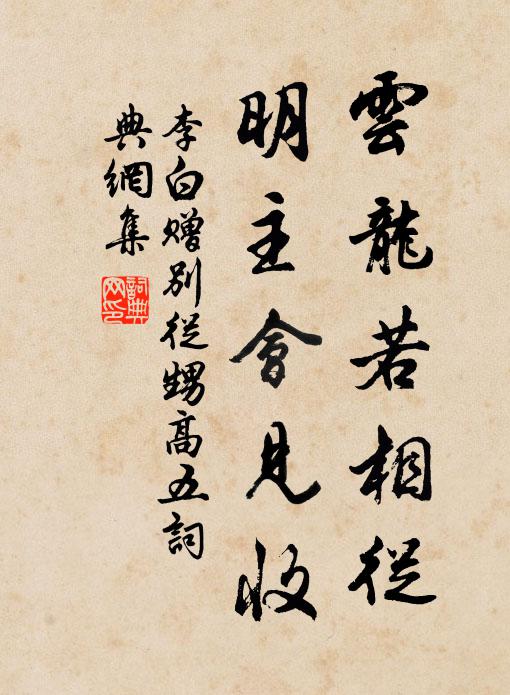 雲龍若相從
明主會見收
李白贈別從甥高五詞
典網集
詞典
网印